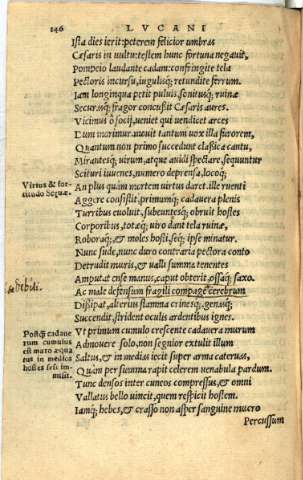 146 LVCANI
Ista dies ierit: peterem felicior umbras
Cæsaris in uultu: testem hunc fortuna negauit,
Pompeio laudante cadam: confringite tela
Pectoris incursu, iugulisq; retundite ferrum.
Iam longinqua petit puluis, sonitusq; ruinæ
Securasq; fragor concussit Cæsaris aures.
Vicimus ô socij, ueniet qui uendicet arces
Dum morimur. mouit tantum uox illa furorem,
Quantum non primo succendunt classica cantu,
Mirantesq; uirum, atque auidi spectare, sequuntur
Scituri iuuenes, numero deprensa, locoq;
Virtus & for-
titudo Scæuæ.
An plus quàm mortem uirtus daret. ille ruenti
Aggere consistit, primumq; cadauera plenis
Turribus euoluit, subeuntesq; obruit hostes
Corporibus, totæq; uiro dant tela ruinæ,
Roboraq;, & moles hosti, seq; ipse minatur.
Nunc sude, nunc duro contraria pectora conto
Detrudit muris, & ualli summa tenentes
Amputat ense manus, caput obterit ossaq; saxo.
debili.
Ac male defensum fragili compage cerebrum
Dissipat, alterius flamma crinesq;, genasq;
Succendit, strident oculis ardentibus ignes.
Postq; cadaue
rum cumulus
est muro æqua
tus in medios
hostes sese im-
misit.
Vt primum cumulo crescente cadauera murum
Admouere solo, non segnior extulit illum
Saltus, & in medias iecit super arma cateruas,
Quàm per summa rapit celerem uenabula pardum.
Tunc densos inter cuneos compressus, & omni
Vallatus bello uincit, quem respicit hostem.
Iamq; hebes, & crasso non asper sanguine mucro
Percussum